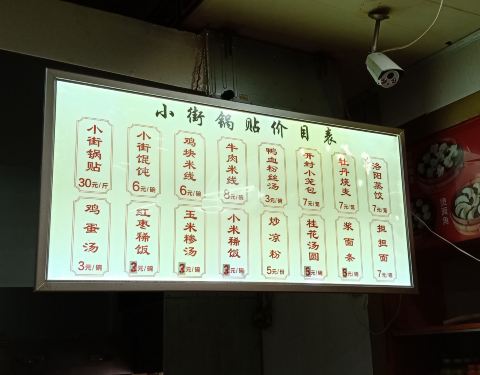 小街锅贴价目表
小街锅贴 30元/斤
小街馄饨 6元/碗
鸡块米线 6元/碗
牛肉米线 8元/碗
鸭血粉丝汤 3元/碗
开封小笼包 7元/笼
牡丹烧麦 7元/笼
洛阳蒸饺 7元/笼
鸡蛋汤 3元/碗
红枣稀饭 3元/碗
玉米糁汤 3元/碗
小米稀饭 3元/碗
炒凉粉 5元/份
桂花汤圆 5元/碗
浆面条 5元/碗
担担面 7元/碗